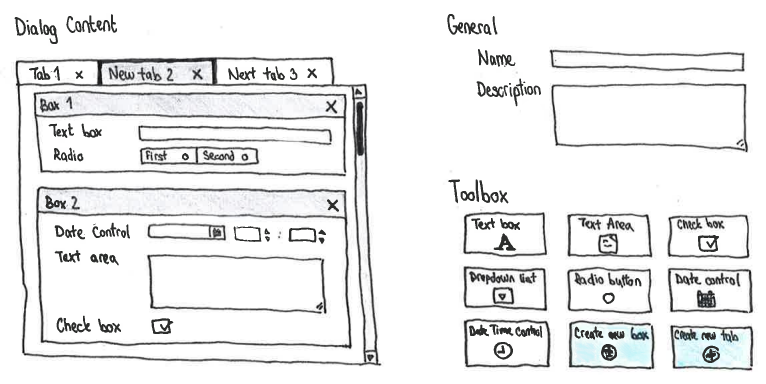 Dialog Content
Tab 1 x
New tab 2 x
Next tab 3 x
Box 1 X
Text box
Radio First Second
Box 2 X
Date Control :
Text area
Check box
General
Name
Description
Toolbox
Text box
A
Text Area
Check box
Dropdown list
Radio button
Date control
Date Time Control
Create new box
Create new tab